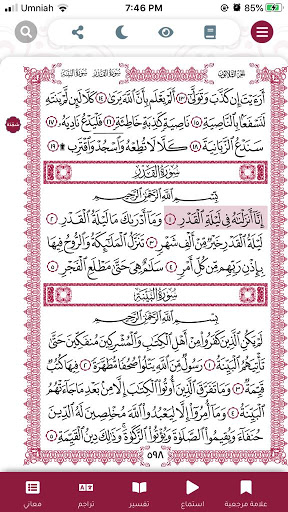 Umniah 7:46 PM 85%
الجزء الثلاثون سورة القدر سورة البينة
أَرَءَيْتَ إِن كَذَّبَ وَتَوَلَّىٰٓ ١٣ أَلَمْ يَعْلَم بِأَنَّ ٱللَّهَ يَرَىٰ ١٤ كَلَّا لَئِن لَّمْ يَنتَهِ
لَنَسْفَعًۢا بِٱلنَّاصِيَةِ ١٥ نَاصِيَةٍ كَـٰذِبَةٍ خَاطِئَةٍ ١٦ فَلْيَدْعُ نَادِيَهُۥ ١٧
سَنَدْعُ ٱلزَّبَانِيَةَ ١٨ كَلَّا لَا تُطِعْهُ وَٱسْجُدْ وَٱقْتَرِب ۩ ١٩
سُورَةُ القَدْرِ
بِسْمِ ٱللَّهِ ٱلرَّحْمَـٰنِ ٱلرَّحِيمِ
إِنَّآ أَنزَلْنَـٰهُ فِى لَيْلَةِ ٱلْقَدْرِ ١ وَمَآ أَدْرَىٰكَ مَا لَيْلَةُ ٱلْقَدْرِ ٢
لَيْلَةُ ٱلْقَدْرِ خَيْرٌ مِّنْ أَلْفِ شَهْرٍ ٣ تَنَزَّلُ ٱلْمَلَـٰٓئِكَةُ وَٱلرُّوحُ فِيهَا
بِإِذْنِ رَبِّهِم مِّن كُلِّ أَمْرٍ ٤ سَلَـٰمٌ هِىَ حَتَّىٰ مَطْلَعِ ٱلْفَجْرِ ٥
سُورَةُ البَيِّنَةِ
بِسْمِ ٱللَّهِ ٱلرَّحْمَـٰنِ ٱلرَّحِيمِ
لَمْ يَكُنِ ٱلَّذِينَ كَفَرُوا۟ مِنْ أَهْلِ ٱلْكِتَـٰبِ وَٱلْمُشْرِكِينَ مُنفَكِّينَ حَتَّىٰ
تَأْتِيَهُمُ ٱلْبَيِّنَةُ ١ رَسُولٌ مِّنَ ٱللَّهِ يَتْلُوا۟ صُحُفًا مُّطَهَّرَةً ٢ فِيهَا كُتُبٌ
قَيِّمَةٌ ٣ وَمَا تَفَرَّقَ ٱلَّذِينَ أُوتُوا۟ ٱلْكِتَـٰبَ إِلَّا مِنۢ بَعْدِ مَا جَآءَتْهُمُ
ٱلْبَيِّنَةُ ٤ وَمَآ أُمِرُوٓا۟ إِلَّا لِيَعْبُدُوا۟ ٱللَّهَ مُخْلِصِينَ لَهُ ٱلدِّينَ
حُنَفَآءَ وَيُقِيمُوا۟ ٱلصَّلَوٰةَ وَيُؤْتُوا۟ ٱلزَّكَوٰةَ ۚ وَذَٰلِكَ دِينُ ٱلْقَيِّمَةِ ٥
٥٩٨
علامة مرجعية استماع تفسير تراجم معاني